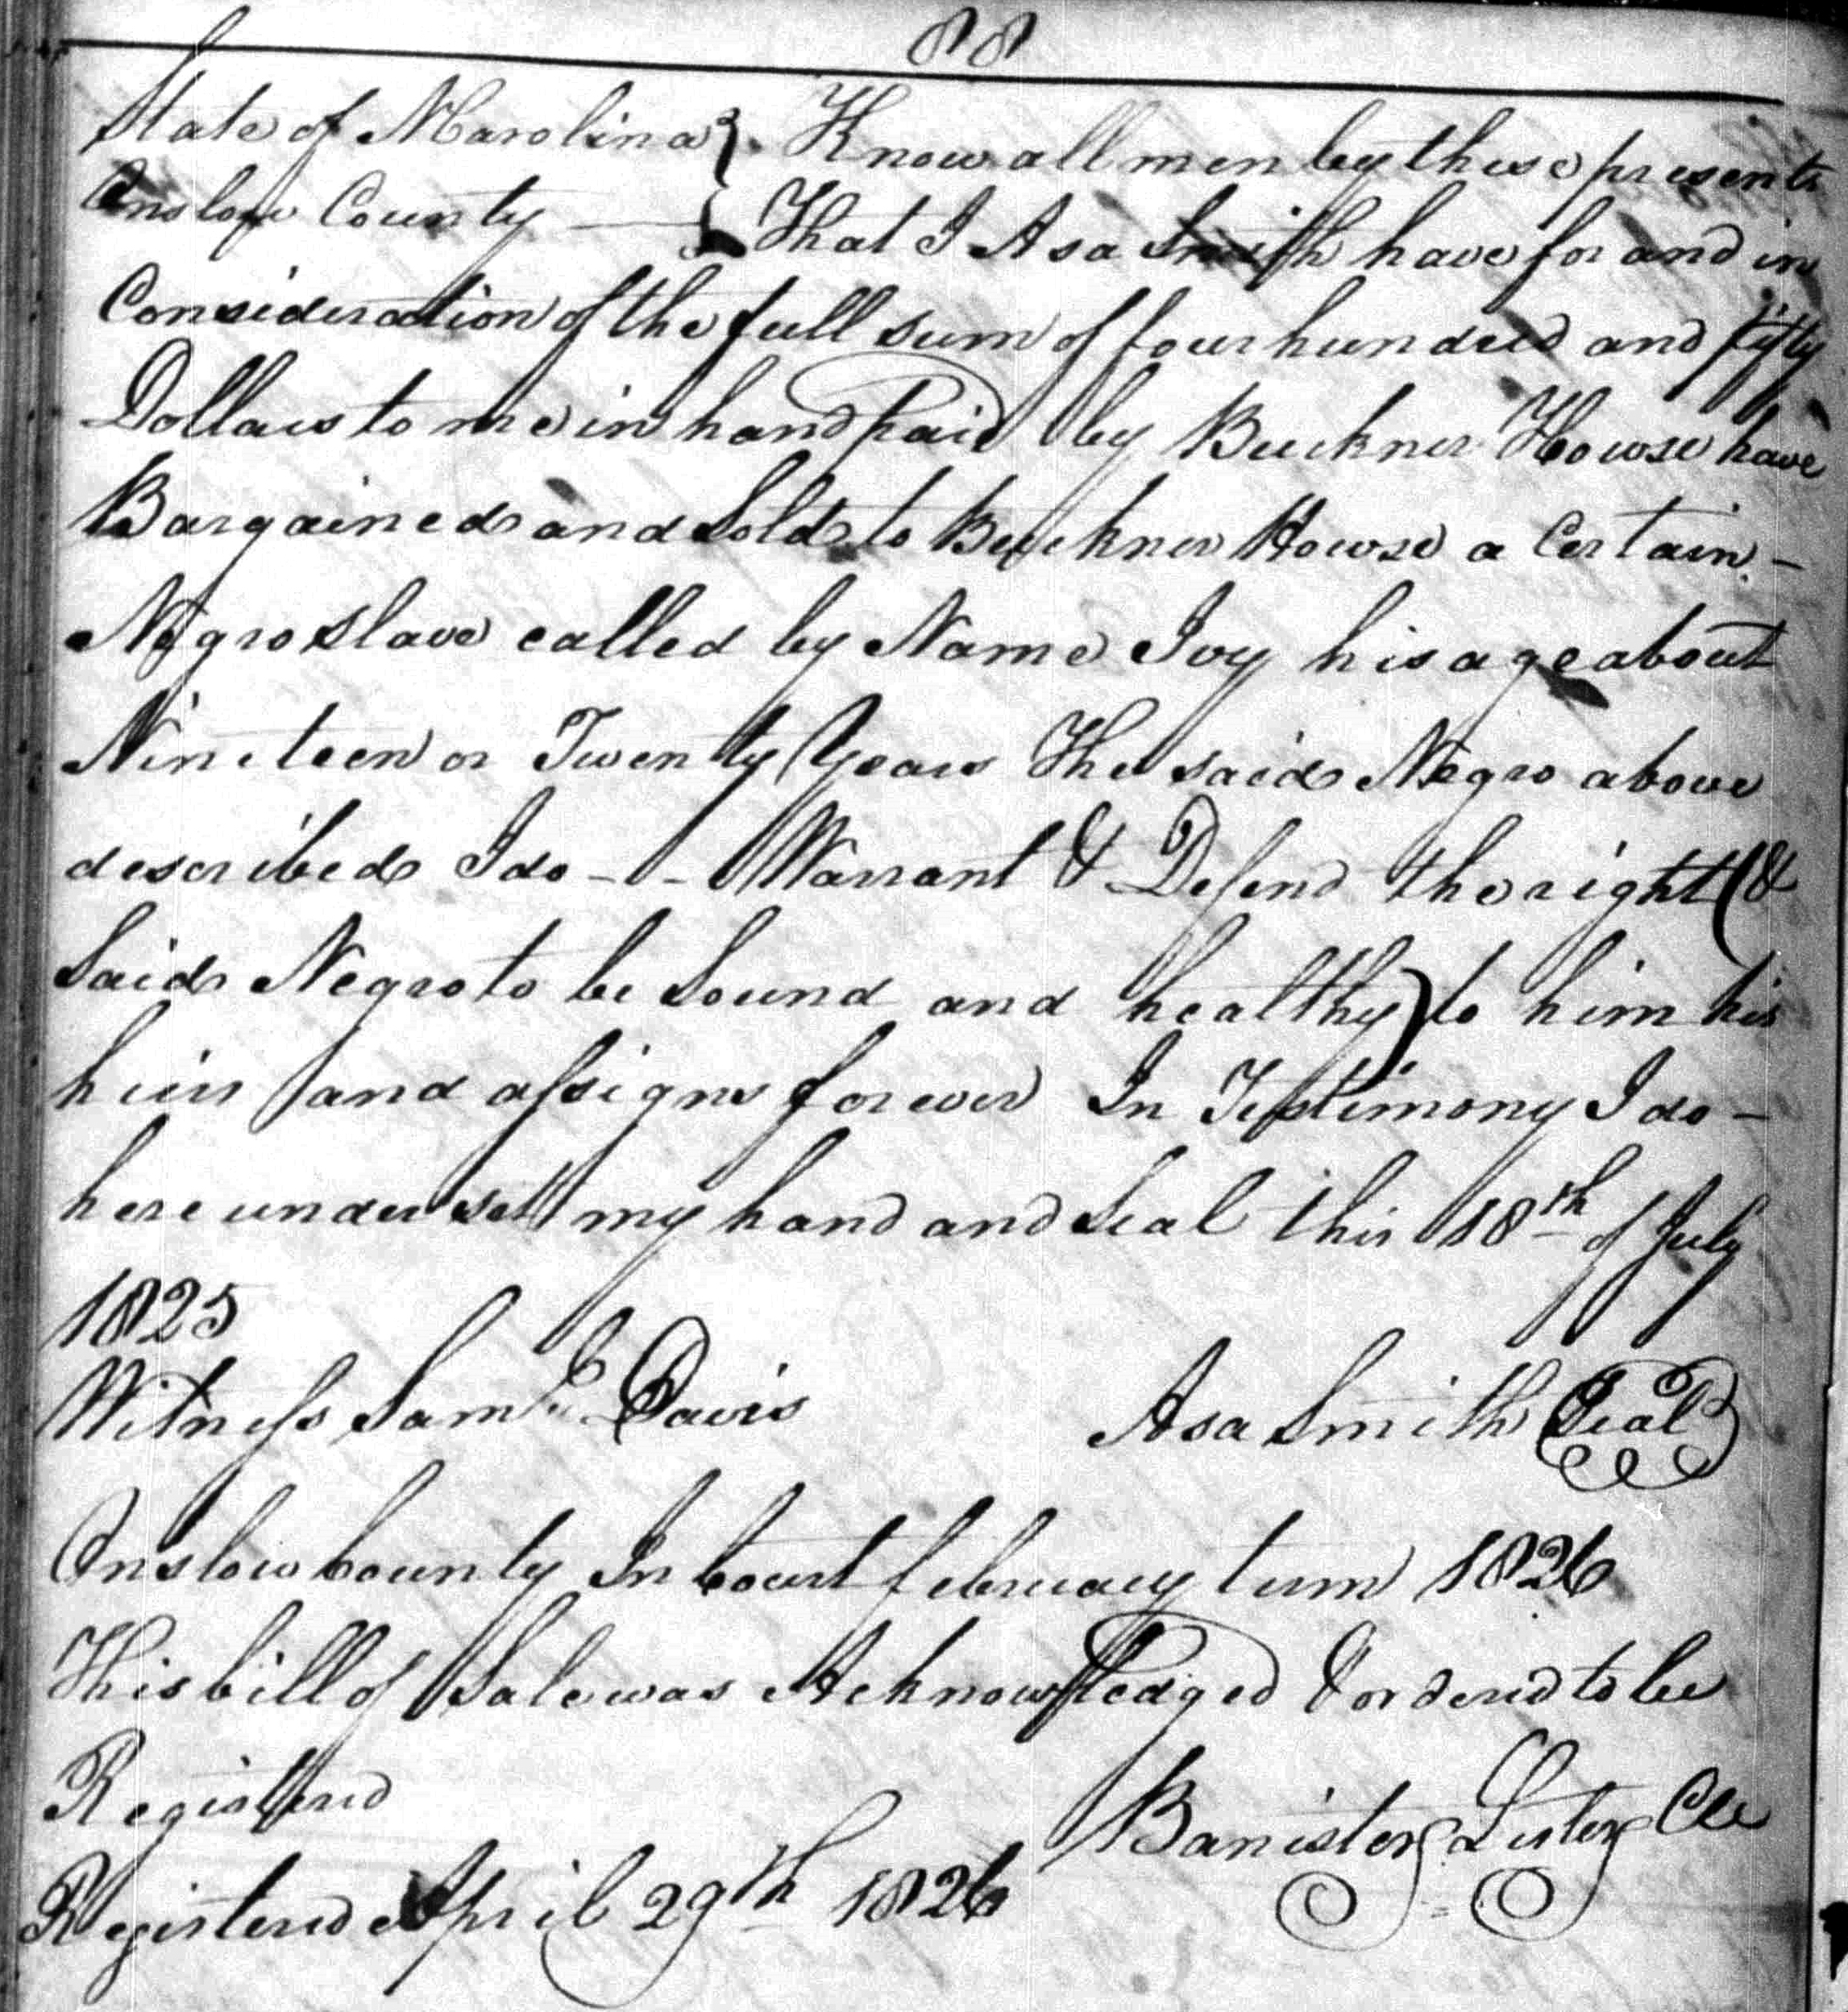 88
State of NCarolina } Know all men by these presents
Onslow County — } That I Asa Smith have for and in
Consideration of the full sum of four hundred and fifty
Dollars to me in hand paid by Buckner Howse have
Bargained and Sold to Buckner Howse a Certain -
Negro slave called by Name Ivy his age about
Nineteen or Twenty Years The said Negro above
described I do - - - Warrant & Defend the right (&
Said Negro to be Sound and healthy) to him his
heirs and assigns forever In Testimony I do -
here under set my hand and Seal this 18th of July
1825
Witness Saml Davis Asa Smith Seal
Onslow County In Court february term 1826
This bill of Sale was Acknowledged & ordered to be
Registered
Banister Lester Clk
Registered April 29th 1826